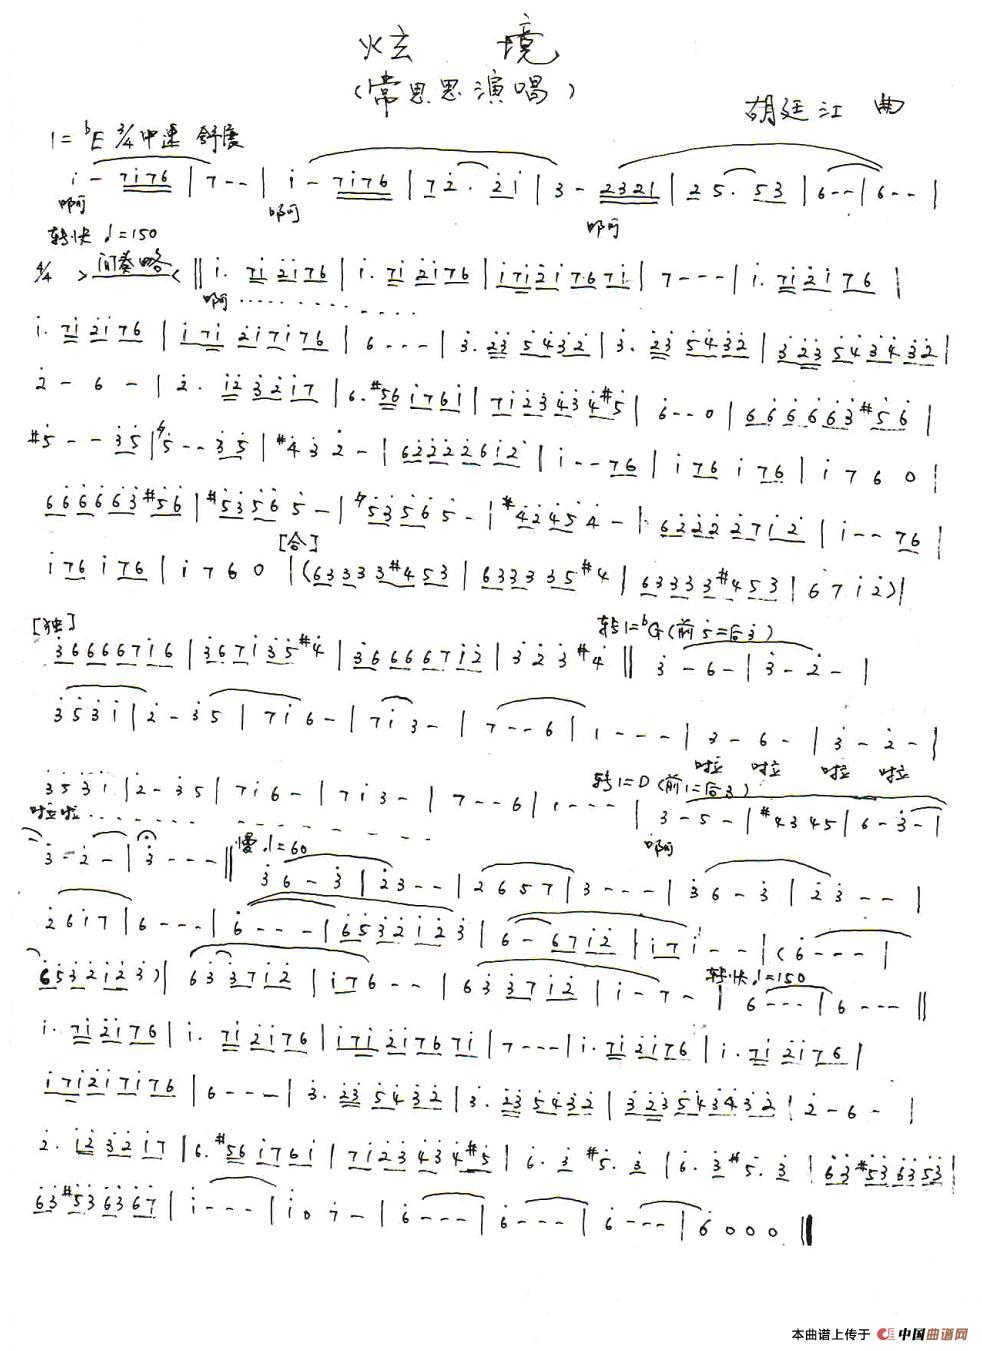 炫 境
(常思思演唱)
胡廷江 曲
1=ᵇE 3/4 中速 舒展
i - 7i76 | 7 - - | i - 7i76 | 7 2̇ · 2̇i | 3 - 2321 | 2 5 · 53 | 6 - - | 6 - - |
啊 啊 啊
转快 ♩=150
4/4 > 间奏略 < ‖ i · 7i 2̇i76 | i · 7i 2̇i76 | i7i2̇i7·67i | 7 - - - | i · 7i2̇i76 |
啊 · · · · · · · · · · · ·
i · 7i 2̇i76 | i7i 2̇i7i76 | 6 - - - | 3̇ · 2̇3̇ 5̇4̇3̇2̇ | 3̇ · 2̇3̇ 5̇4̇3̇2̇ | 3̇2̇3̇5̇4̇3̇4̇3̇2̇ |
2̇ - 6 - | 2̇ · i2̇ 3̇2̇i7 | 6 · #56 i76i | 7i2̇3̇4̇3̇4̇#5̇ | 6̇ - - 0 | 6̇6̇6̇6̇6̇3̇#5̇6̇ |
#5̇ - - 3̇5̇ | ♮5̇ - - - 3̇5̇ | #4̇ 3̇ 2̇ - | 62̇2̇2̇2̇6i2̇ | i - - 76 | i76 i76 | i 7 6 0 |
6̇6̇6̇6̇6̇3̇#5̇6̇ | #5̇3̇5̇6̇ 5̇ - | ♮5̇3̇5̇6̇ 5̇ - | #4̇2̇4̇5̇ 4̇ - | 62̇2̇2̇2̇7i2̇ | i - - 76 |
[合]
i76 i76 | i 7 6 0 | (63333#453 | 6333 35#4 | 63333#453 | 6 7 i 2̇) |
[独] 转1=ᵇG(前5̇=后3̇)
3̇66667i6 | 3̇67i3̇5̇#4̇ | 3̇66667i2̇ | 3̇ 2̇ 3̇ #4̇ ‖ 3̇ - 6 - | 3̇ - 2̇ - |
3̇5̇3̇i | 2̇ - 3̇5̇ | 7i6 - | 7i3 - | 7 - - 6 | 1 - - - | 3 - 6 - | 3̇ - 2̇ - |
啦 啦 啦 啦
转1=D(前1=后3)
3̇5̇3̇i | 2̇ - 3̇5 | 7i6 - | 7i3 - | 7 - - 6 | 1 - - - | 3 - 5 - | #4345 | 6 - 3̇ - |
啦啦 · · · · · · · · 啊
慢 ♩=60
3̇ - 2̇ - | 3̇ - - - ‖ 3̇6 - 3̇ | 2̇3 - - | 2657 | 3 - - - | 3̇6 - 3̇ | 2̇3̇ - - |
2̇6i7 | 6 - - - | 6̇ - - - | 6̇5̇3̇2̇i2̇3̇ | 6 - 67i2̇ | i7i - - | (6̇ - - - |
转快 ♩=150
6̇5̇3̇2̇i2̇3̇) | 63̇3̇7i2̇ | i76 - - | 63̇3̇7i2̇ | i - 7 - | 6 - - - | 6 - - - ‖
i · 7i2̇i76 | i · 7i2̇i76 | i7i2̇i767i | 7 - - - | i · 7i2̇i76 | i · 7i 2̇i76 |
i7i2̇i7i76 | 6 - - - | 3̇ · 2̇3̇ 5̇4̇3̇2̇ | 3̇ · 2̇3̇5̇4̇3̇2̇ | 3̇2̇3̇5̇4̇3̇4̇3̇2̇ | 2̇ - 6 - |
2̇ · i2̇ 3̇2̇i7 | 6 · #56i76i | 7i2̇3̇4̇3̇4̇#5̇ | 6̇ · 3̇ #5̇ · 3̇ | 6̇ · 3̇ #5̇ · 3̇ | 6̇3̇#5̇3̇6̇3̇5̇3̇ |
6̇3̇#5̇3̇6̇3̇6̇7̇ | i - - - | i 0 7̇ - | 6̇ - - - | 6̇ - - - | 6̇ - - - | 6̇ 0 0 0 ‖
本曲谱上传于 中国曲谱网